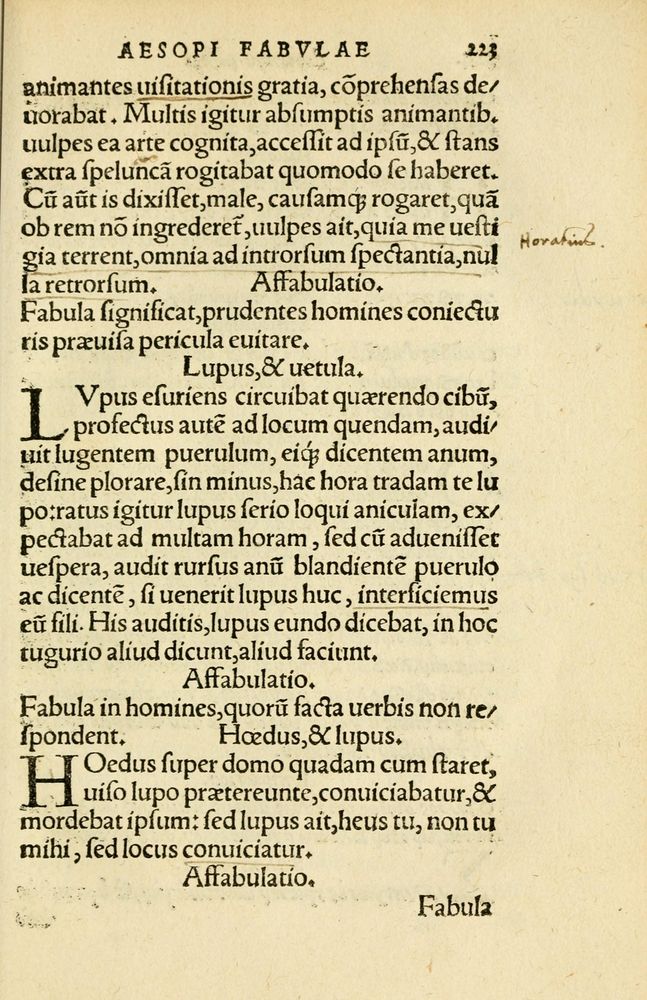 AESOPI FABVLAE 223
animantes uisitationis gratia, cõprehensas de/
uorabat. Multis igitur absumptis animantib.
uulpes ea arte cognita, accessit ad ipsũ, & stans
extra speluncã rogitabat quomodo se haberet.
Cũ aũt is dixisset, male, causamq; rogaret, quã
ob rem nõ ingrederet̃, uulpes ait, quia me uesti
gia terrent, omnia ad introrsum spectantia, nul
Horatius.
la retrorsum. Affabulatio.
Fabula significat, prudentes homines coniectu
ris præuisa pericula euitare.
Lupus, & uetula.
LVpus esuriens circuibat quærendo cibũ,
profectus autẽ ad locum quendam, audi/
uit lugentem puerulum, eiq; dicentem anum,
desine plorare, sin minus, hac hora tradam te lu
po: ratus igitur lupus serio loqui aniculam, ex/
pectabat ad multam horam, sed cũ aduenisset
uespera, audit rursus anũ blandientẽ puerulo
ac dicentẽ, si uenerit lupus huc, interficiemus
eũ fili. His auditis, lupus eundo dicebat, in hoc
tugurio aliud dicunt, aliud faciunt.
Affabulatio.
Fabula in homines, quorũ facta uerbis non re/
spondent. Hœdus, & lupus.
HOedus super domo quadam cum staret,
uiso lupo prætereunte, conuiciabatur, &
mordebat ipsum: sed lupus ait, heus tu, non tu
mihi, sed locus conuiciatur.
Affabulatio.
Fabula